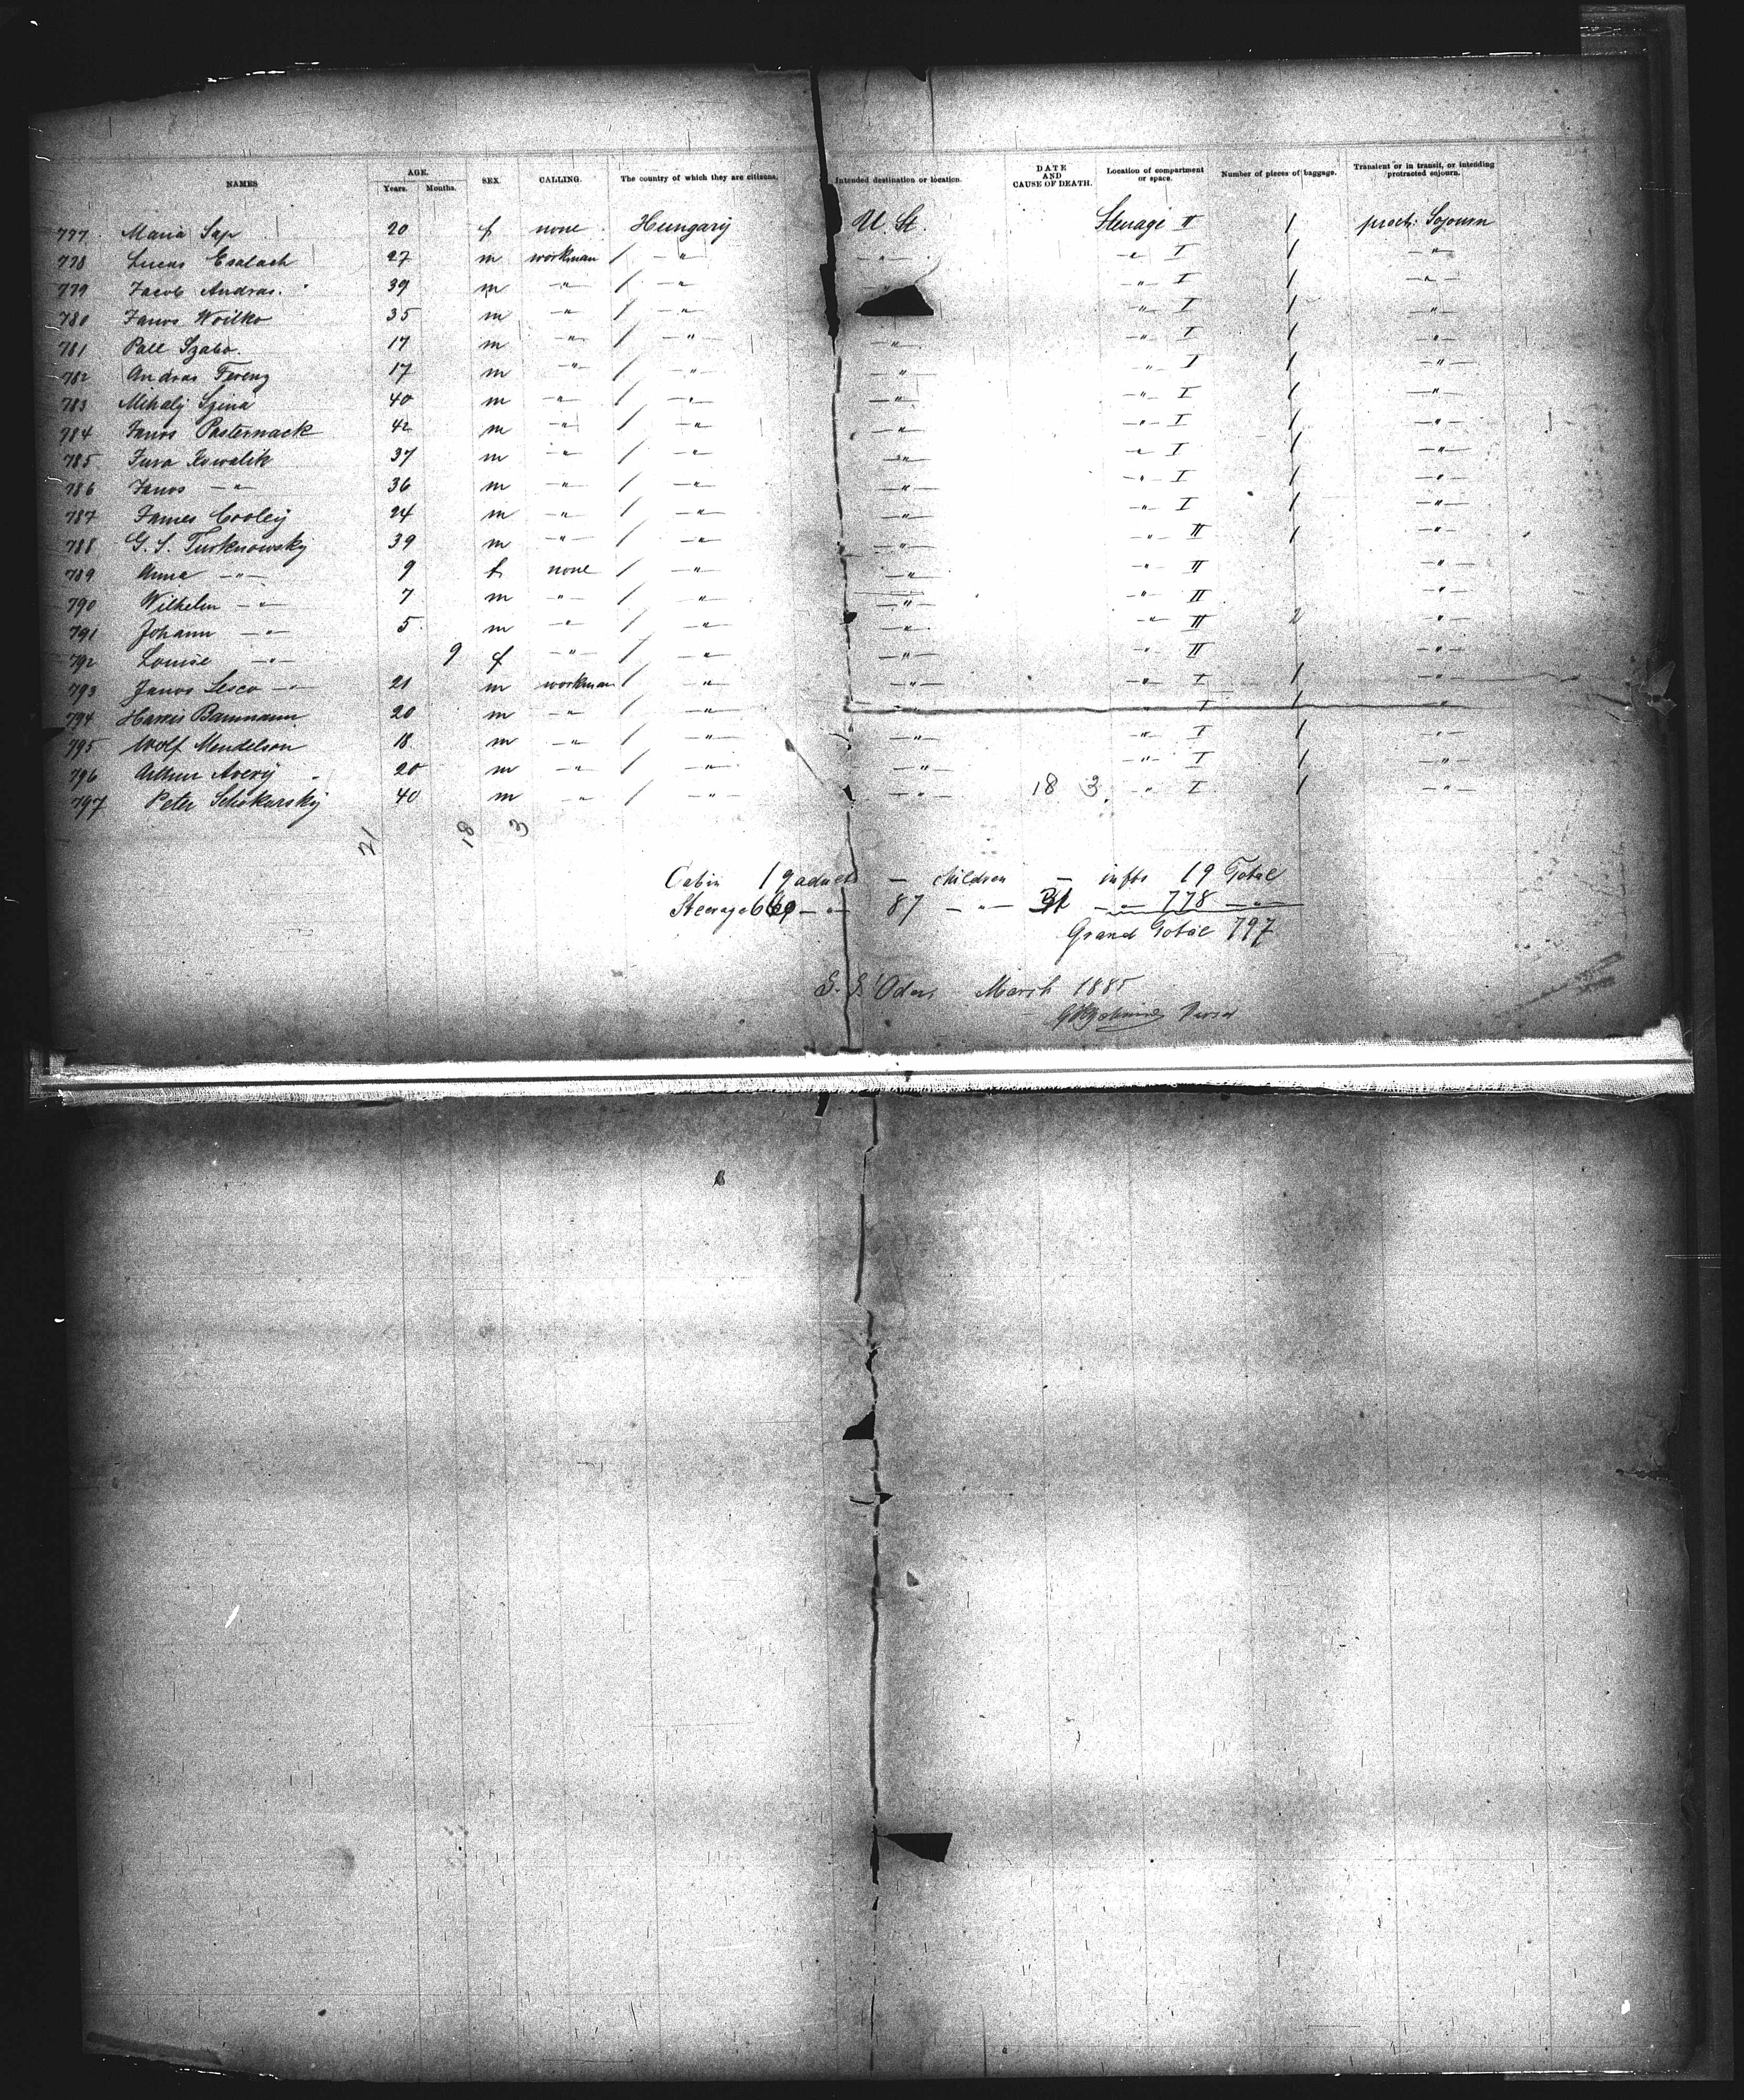 NAMES AGE. Years. Months. SEX. CALLING. The country of which they are citizens. Intended destination or location. DATE AND CAUSE OF DEATH. Location of compartment or space. Number of pieces of baggage. Transient or in transit, or intending protracted sojourn.
777 Maria Sap 20 f none Hungary U. St. Steerage II 1 protr. Sojourn
778 Lucas Esalach 27 m workman / —"— —"— —"— I 1 —"—
779 Jacob Andras 39 m —"— / —"— —"— I 1 —"—
780 Janos Woilko 35 m —"— / —"— —"— I 1 —"—
781 Pall Szabo 17 m —"— / —"— —"— —"— I 1 —"—
782 Andras Ferenz 17 m —"— / —"— —"— —"— I 1 —"—
783 Mihaly Szina 40 m —"— / —"— —"— —"— I 1 —"—
784 Janos Pasternack 42 m —"— / —"— —"— —"— I 1 —"—
785 Jura Kowalik 37 m —"— / —"— —"— —"— I 1 —"—
786 Janos —"— 36 m —"— / —"— —"— —"— I 1 —"—
787 James Cooley 24 m —"— / —"— —"— —"— I 1 —"—
788 G. S. Turknowsky 39 m —"— / —"— —"— —"— II 1 —"—
789 Anna —"— 9 f none / —"— —"— —"— II —"—
790 Wilhelm —"— 7 m —"— / —"— —"— —"— II —"—
791 Johann —"— 5 m —"— / —"— —"— —"— II 2 —"—
792 Louise —"— 9 f —"— / —"— —"— —"— II —"—
793 Janos Lesco —"— 21 m workman / —"— —"— —"— I 1 —"—
794 Harris Bammann 20 m —"— / —"— —"— —"— I 1 —"—
795 Wolf Mendelson 18 m —"— / —"— —"— —"— I 1 —"—
796 Arthur Avery 20 m —"— / —"— —"— —"— I 1 —"—
797 Peter Schokarsky 40 m —"— / —"— —"— 18 3 —"— I 1 —"—
21 18 3
Cabin 19 adults — children — infts 19 Total
Steerage 660 —"— 87 —"— 31 —"— 778 —"—
Grand Total 797
S. S. Oder, March 1885
Purser